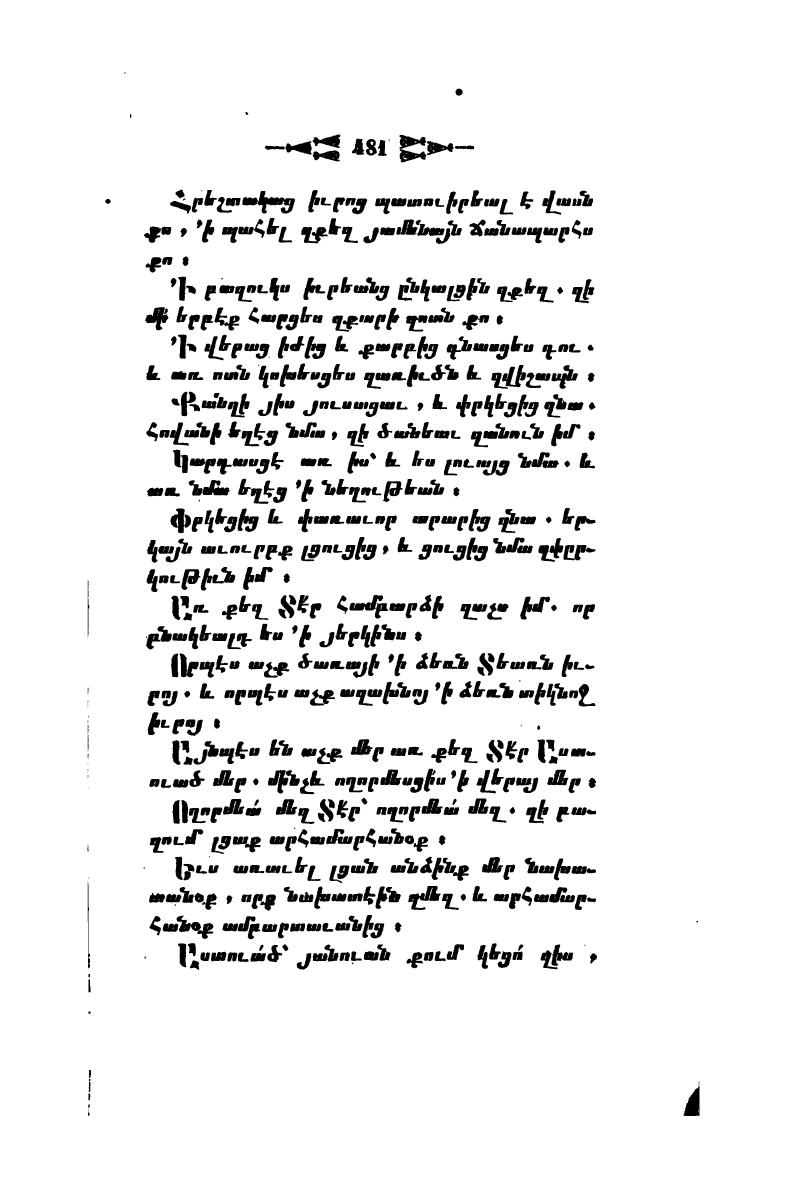 481
Հրեշտակաց իւրոց պատուիրեալ է վասն
քո , ՚ի պահել զքեզ յամենայն ճանապարհս
քո ։
՚Ի բազուկս իւրեանց ընկալցին զքեզ . զի
մի երբէք հարցես զքարի զոտն քո ։
՚Ի վերայ իժից և քարբից գնասցես դու .
և առ ոտն կոխեսցես զառիւծն և զվիշապն ։
Քանզի յիս յուսացաւ , և փրկեցից զնա .
հովանի եղէց նմա , զի ծանեաւ զանուն իմ ։
Կարդասցէ առ իս՝ և ես լուայց նմա . և
առ նմա եղէց ՚ի նեղութեան ։
Փրկեցից և փառաւոր արարից զնա . եր֊
կայն աւուրբք լցուցից , և ցուցից նմա զփըր֊
կութիւն իմ ։
Առ քեզ Տէր համբարձի զաչս իմ . որ
բնակեալդ ես ՚ի յերկինս ։
Որպէս աչք ծառայի ՚ի ձեռն Տեառն իւ֊
րոյ . և որպէս աչք աղախնոյ ՚ի ձեռն տիկնոջ
իւրոյ ։
Այնպէս են աչք մեր առ քեզ Տէր Աստ֊
ուած մեր . մինչև ողորմեսցիս ՚ի վերայ մեր ։
Ողորմեա՛ մեզ Տէր՝ ողորմեա՛ մեզ . զի բա֊
զում լցաք արհամարհանօք ։
Եւս առաւել լցան անձինք մեր նախա֊
տանօք , որք նախատէին զմեզ . և արհամար֊
հանօք ամբարտաւանից ։
Աստուա՛ծ՝ յանուան քում կեցո՛ զիս ,